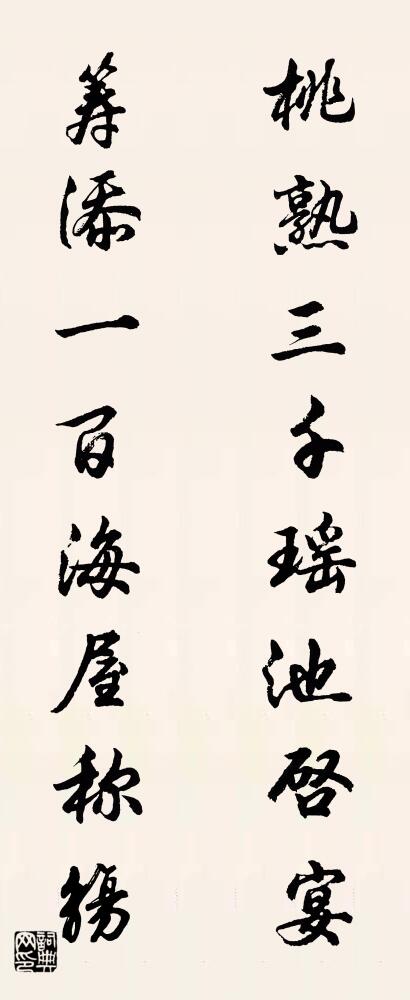 桃熟三千瑶池启宴
筹添一百海屋称觞
詞典网印